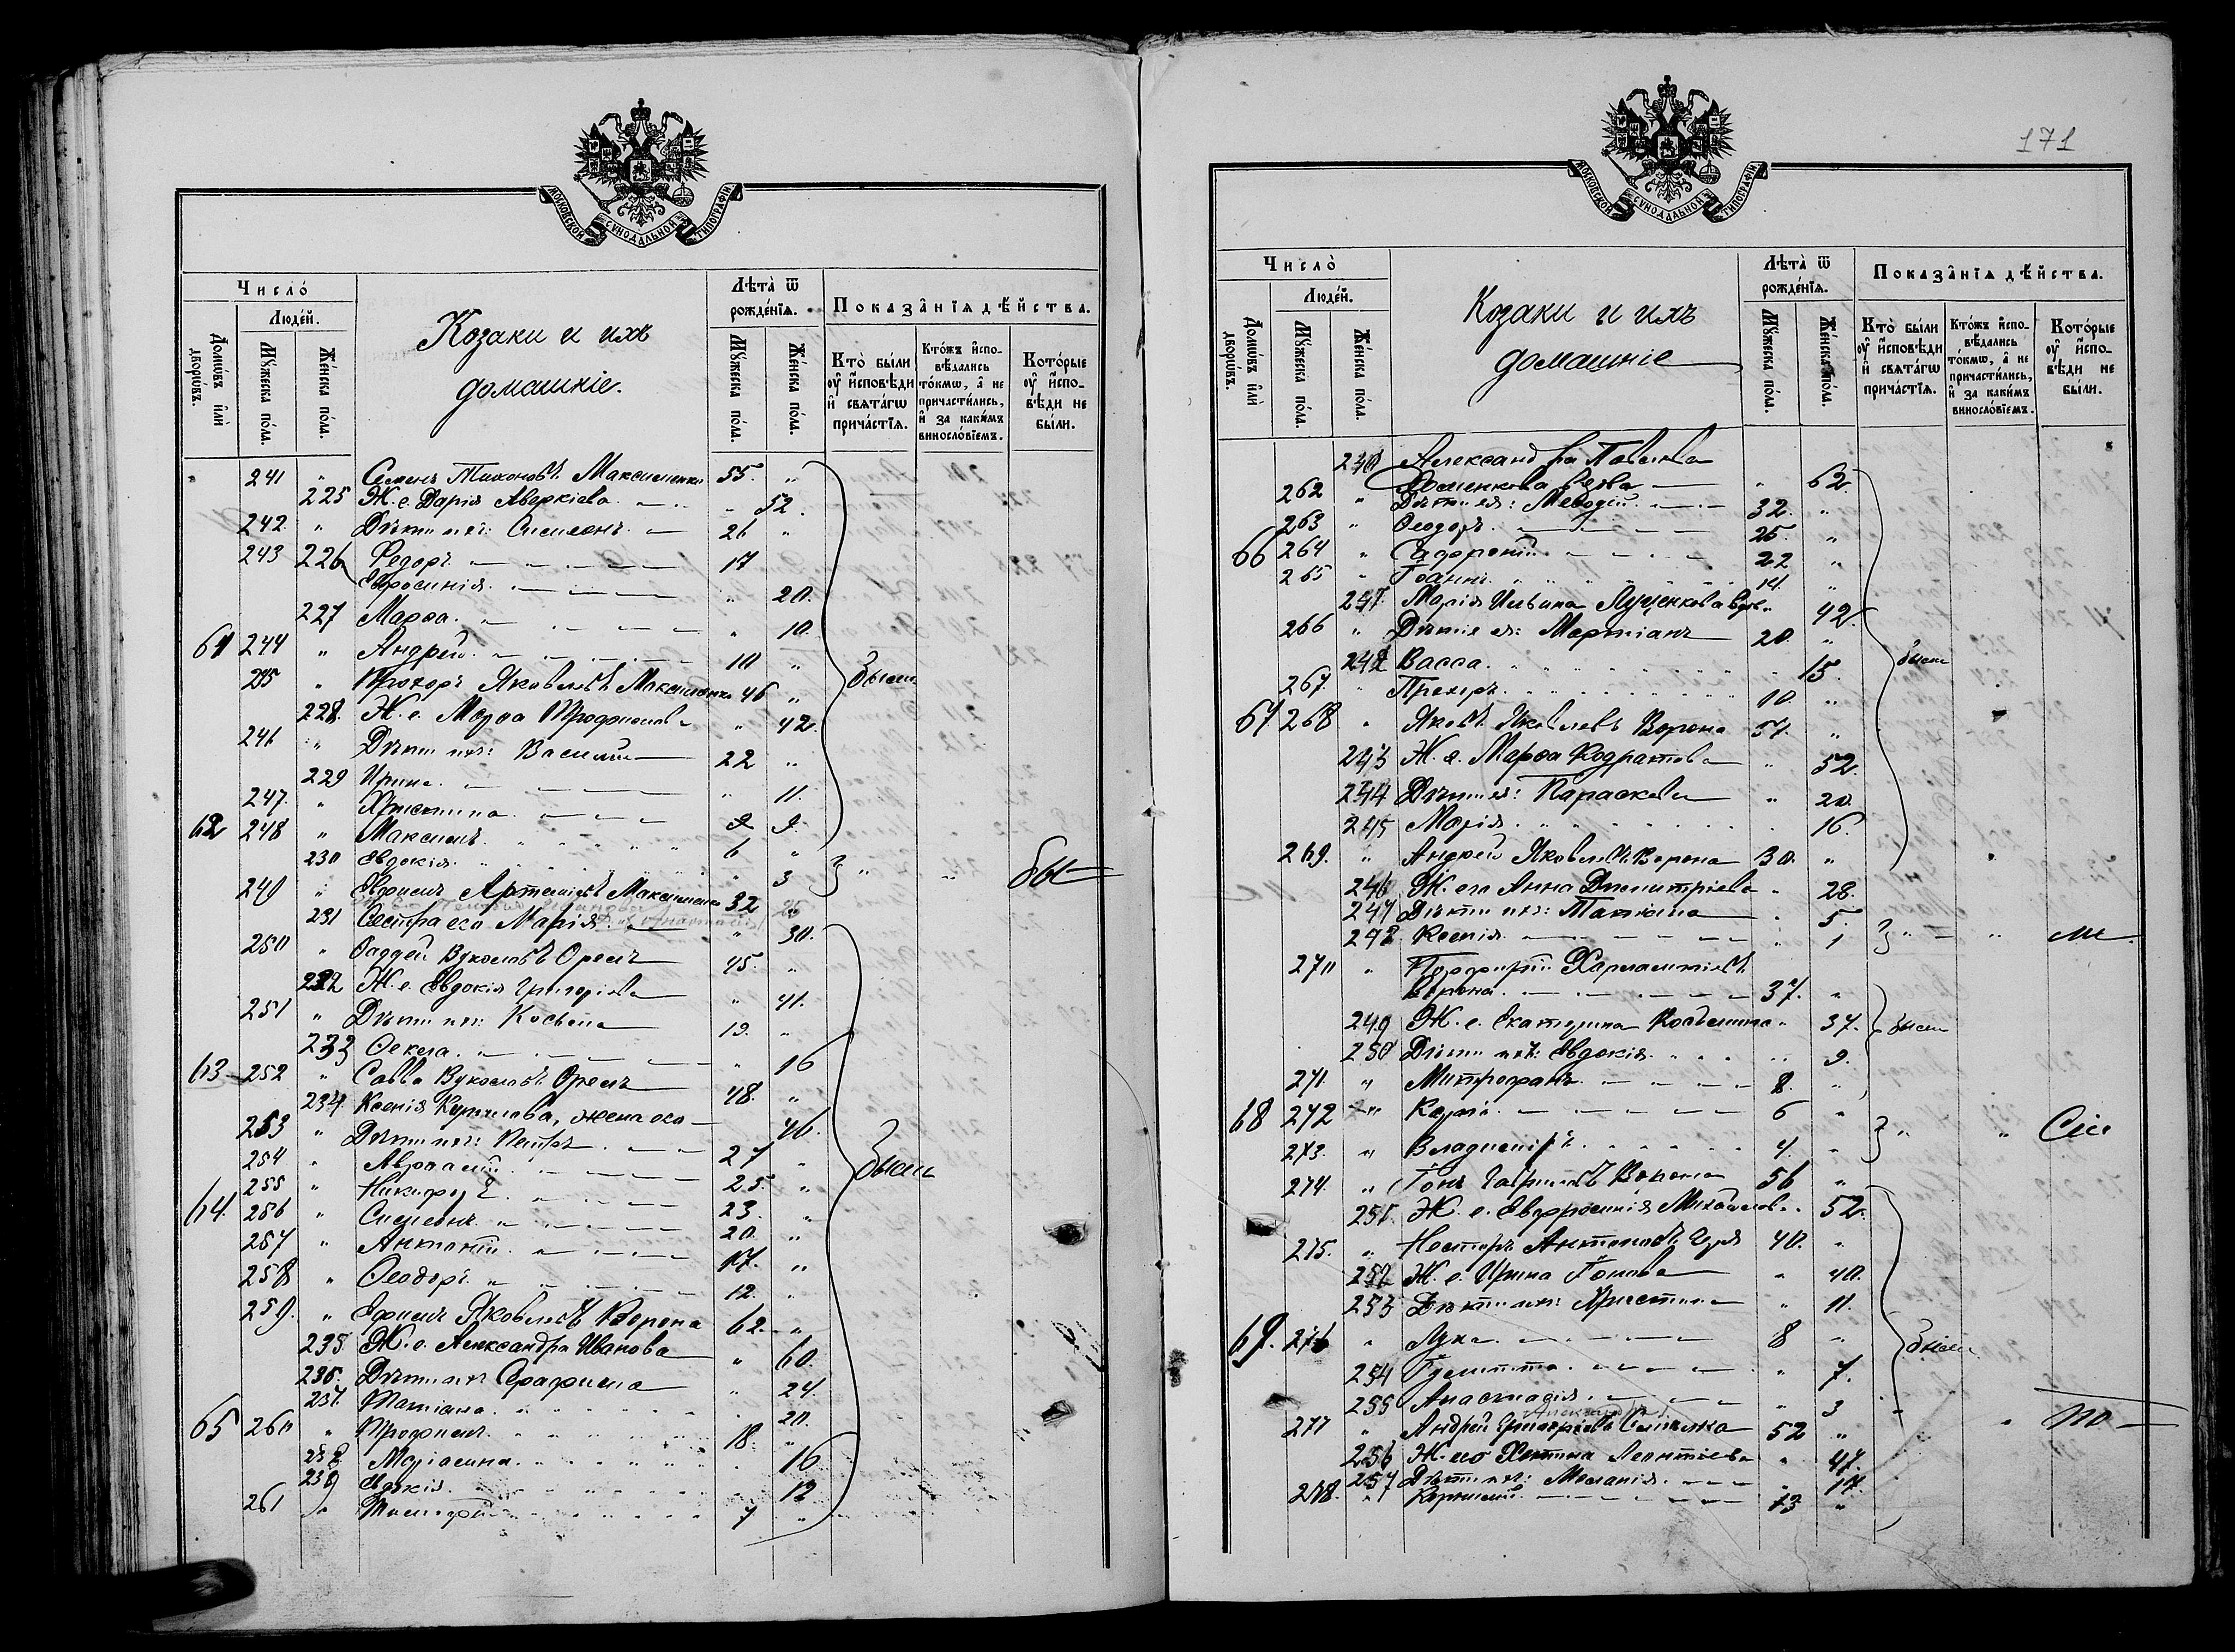 МОСКОВСКОЙ СУНОДАЛЬНОЙ ТИПОГРАФІИ
Число́
Люде́й.
Домѡ́въ и҆лѝ дворѡ́въ.
Мꙋ́жеска по́ла.
Же́нска по́ла.
Козаки и ихъ
домашніе.
Лѣта̀ ѿ рожде́нїѧ.
Мꙋ́жеска по́ла.
Же́нска по́ла.
Показа̑нїѧ дѣ́йства.
Кто̀ бы́ли оу҆ и҆сповѣ́ди и҆ свѧта́гѡ прича́стїѧ.
Кто́жъ и҆спо-вѣ́дались то́кмѡ, а҆ не причасти́лись, и҆ за каки́мъ винословїемъ.
Кото́рые оу҆ и҆спо-вѣ́ди не бы́ли.
241 " Семенъ Тихоновъ Максименко 55. "
225 Ж. е. Дарія Аверкіева " 52.
242. " Дѣти ихъ: Симеонъ 26 "
243 226 Федоръ 17
Евросинія " 20.
227 Марѳа " 10.
61 244 " Андрей 10 "
245 " Прохоръ Яковлевъ Максименко 46 "
228. Ж. е. Марѳа Трофимова " 42.
246 " Дѣти ихъ: Василій 22 "
229 Ирина " 11.
247. " Христина 9 9
62 248 " Максимъ 6 "
230 Евдокія " 3
Были
249 " Евфимъ Артемовъ Максименко 32 "
231 Сестра его Марія " 30.
250 " Ѳаддей Вуколовъ Орелъ 45. "
232 Ж. е. Евдокія Григоріева " 41.
251 " Дѣти ихъ: Косьма 19. "
233 Ѳекла " 16
63 252 " Савва Вуколовъ Орелъ 48. "
234. Ксенія Кирилова, жена его 46.
253 " Дѣти ихъ: Петръ 27 "
254 " Авраамій 25. "
255 " Никифоръ 23. "
64. 256 " Симеонъ 20. "
257 " Антоній 17. "
258 " Ѳеодоръ 12. "
Были
259. " Ефимъ Яковлевъ Ворона 62. "
235. Ж. е. Александра Иванова " 60.
236. Дѣти ихъ Серафима " 24.
237. Татіана 20.
65 260 " Трофимъ 18. "
238 Маріамна 16
239 Евдокія 12
261 " Тимофей 7 "
171
МОСКОВСКОЙ СУНОДАЛЬНОЙ ТИПОГРАФІИ
Число̀
Люде́й.
Домѡ́въ и҆лѝ дворѡ́въ.
Мꙋ́жеска по́ла.
Же́нска по́ла.
Козаки и ихъ
домашніе
Лѣта̀ ѿ рожде́нїѧ.
Мꙋ́жеска по́ла.
Же́нска по́ла.
Показа̑нїѧ дѣ́йства.
Кто̀ бы́ли оу҆ и҆сповѣ́ди и҆ свѧта́гѡ прича́стїѧ.
Кто́жъ и҆спо-вѣ́дались то́кмѡ, а҆ не причасти́лись, и҆ за каки́мъ винословїемъ.
Кото́рые оу҆ и҆спо-вѣ́ди не бы́ли.
240 Александра Павлова
вдова " 62.
262 " Дѣти ея: Меѳодій 32. "
263 " Ѳеодоръ 25. "
66 264 " 22 "
265 " Іоаннъ 14. "
241. Марія Ильина Луценкова вдов. 42.
266 " Дѣти ея: Мартіанъ 20. "
242 Васса 15.
267. " Прохоръ 10. "
были
67 268 " Яковъ Яковлевъ Ворона 57. "
243 Ж. е. Марѳа Кодратова " 52.
244 Дѣти ея: Параскева " 20.
245 Марія 16.
269. " Андрей Яковлевъ Ворона 30. "
246 Ж. его Анна Димитріева 28.
247 Дѣти ихъ: Татіана 5.
248 Ксенія 1
270 " Порфирій Харлампіевъ
Ворона 37. "
249 Ж. е. Екатерина Косьмина " 37.
были
250 Дѣти ихъ: Евдокія 9.
271. " Митрофанъ 8. "
68 272 " Карпъ 6 "
273. " Владиміръ 4. "
274. " Іона Ворона 56 "
251. Ж. е. Евфросинія Михайлова 52.
275. " Несторъ Антоновъ 40. "
252 Ж. е. Ирина Іонова " 40.
253 Дѣти ихъ: Христина " 11.
69. 276 " Лука 8 "
были
254 Іулитта 7.
255 Анастасія " 3
277 " Андрей Григоріевъ 52 "
256 Ж. его Леонтіева " 47.
257 Дѣти ихъ: Меланія 17.
278. " Корнилій 13 "